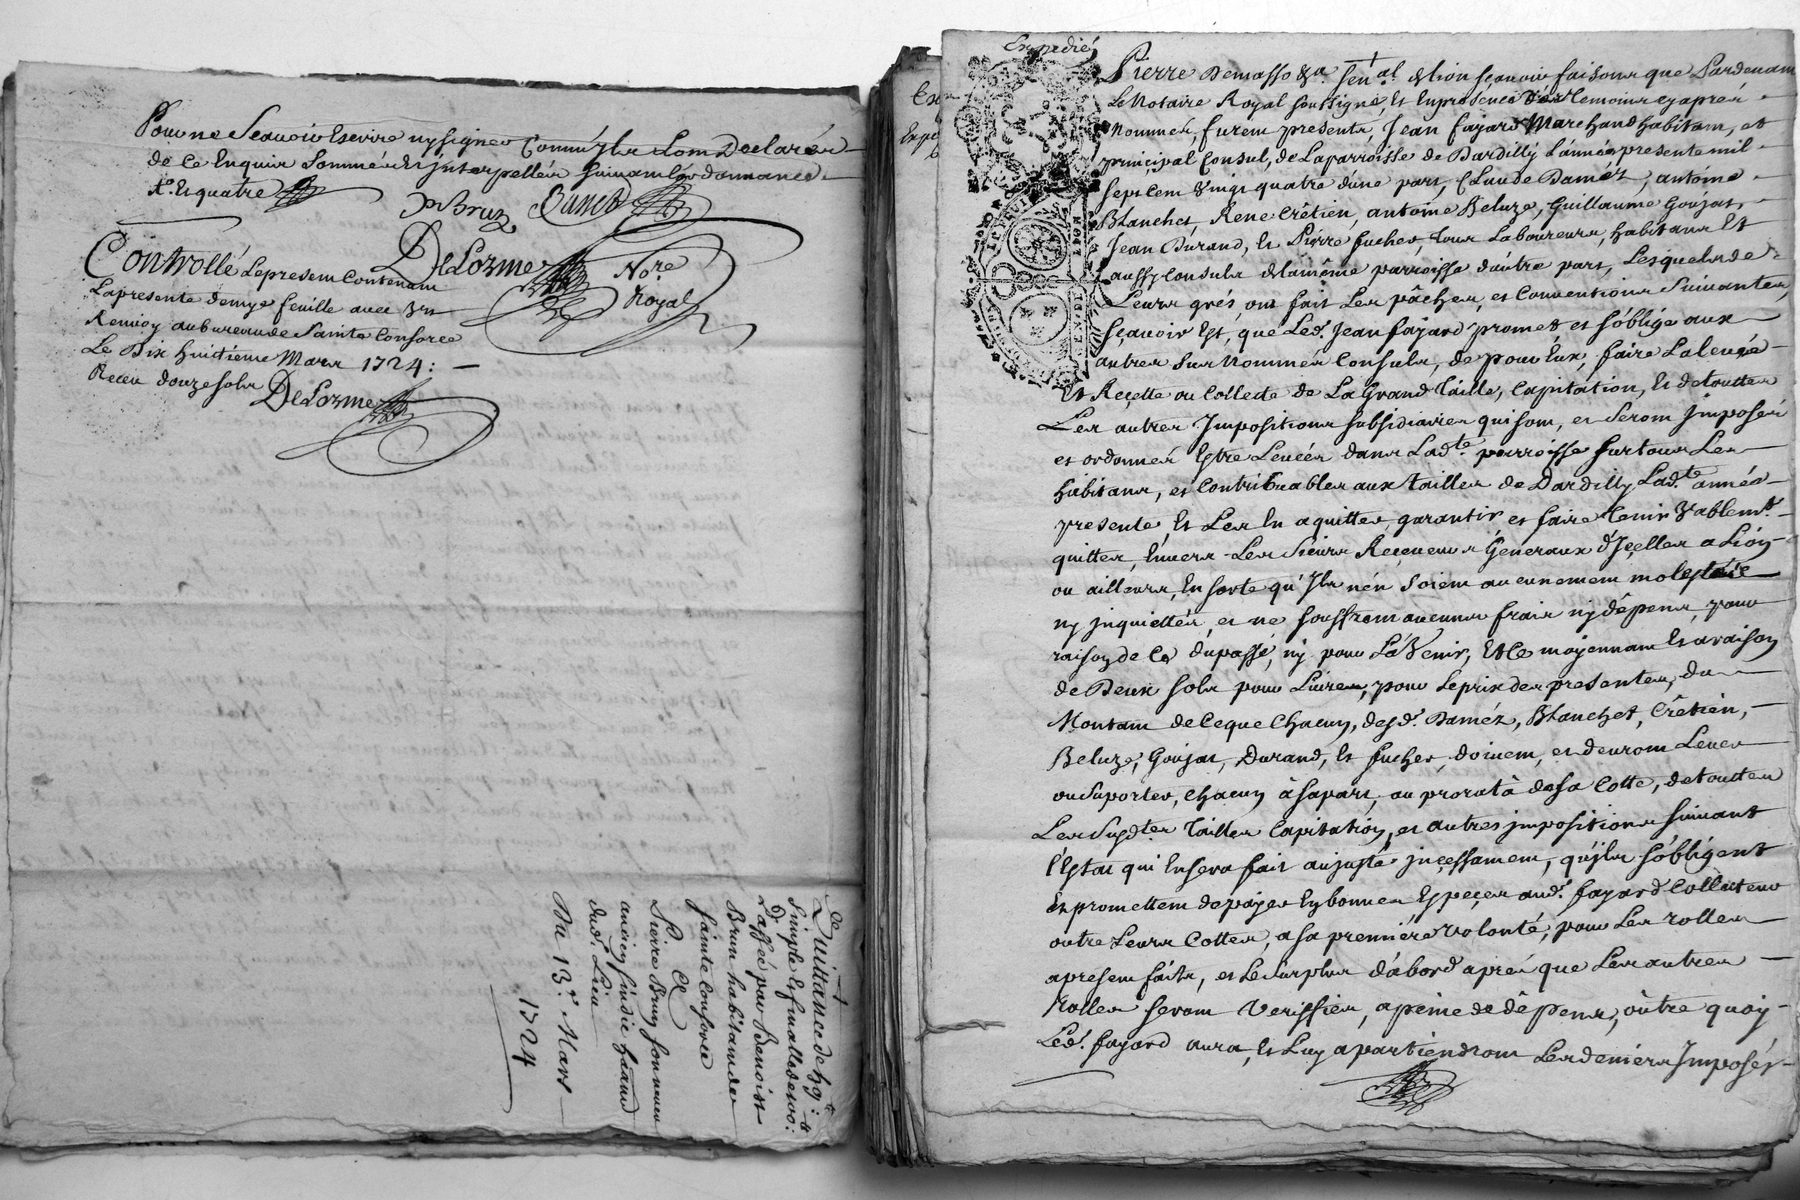 Pour ne Scavoir Escrire ny signer Comm'jls Lom Declaréz
de Ce Enquis Sommés Et jnterpellés Suivant Lordonnance
Et quatre
PBrun
DeLorme Nore
Royal
Controllé Lepresent Contenant
Lapresente demye feuille avec Vn
Renvoy aubureau de Sainte Consorce
Le Dix huitieme Mars 1724:
Receu douze sols DeLorme
Quittance de
simple Et finalle de
passée par Benoist
Brun habitant de
Sainte Consorce
a
Pierre Brun
ancien sindic
dud. Lieu
Du 13e. Mars
1724
Expedié
Pierre Demasso &a. Senal. de Lion scavoir faisons que Pardevant
Le Notaire Royal soussigné, Et Enpresence des temoins cyaprés
Nommés furent presents, Jean fayard Marchand habitant, et
principal Consul, de Laparroisse de Dardilly L'année presente mil
sept Cent vingt quatre d'une part, Claude Daméz, antoine
Blanchet, René Crêtien, antoine Beluze, Guillaume Goujat,
Jean Durand, Et Pierre fucher, tous Laboureurs, habitans Et
aussy Consuls de Lamême parroisse d'autre part, Lesquels de
Leurs grés ont fait Les pâches, et Conventions Suivantes,
Sçavoir Est, que Led. Jean fayard promet et s'oblige aux
autres Sus Nommés Consuls, de pour Eux, faire La Levée
Et Reçette ou Collecte de La Grand Taille, Capitation, Et de toutes
Les autres Impositions subsidiaires qui sont, et Seront jmposés
et ordonnés Estre Levées dans Ladte. parroisse sur tous Les
habitans, et Contribuables aux tailles de Dardilly Ladte. année
presente, Et Les En aquitter, garantir, et faire tenir Vablemt.
quittes, Envers Les Sieurs Reçeveurs Generaux d'Jçelles a Lion
ou ailleurs, En sorte qu'Jls n'en Soient aucunement molestés
ny jnquiettés, et ne souffrent aucuns frais ny dêpens, pour
raison de Ce du passé, ny pour L'a Venir, Et Ce moyennant Et a raison
de Deux sols pour Livres, pour Le prix des presentes, du
Montant de Ce que Chacun, desd. Daméz, Blanchet, Crêtien,
Beluze, Goujat, Durand, Et fucher, doivent, et devront Lever
ou Suporter, Chacun à sa part, au prorata de sa Cotte, de toutes
Les Susdtes Tailles Capitation, et autres jmpositions suivant
l'Estat qui En sera fait au juste jnçessament, qu'jls s'obligent
Et promettent de payer En bonnes Espeçes aud. fayard Collecteur
outre Leurs Cottes, a sa première Volonté, pour Les rolles
apresent faits, et Le Surplus d'abord après que Les autres
Rolles seront Veriffiés, a peine de dêpens, outre quoy
Led. fayard aura, Et Luy apartiendront Les deniers Imposés